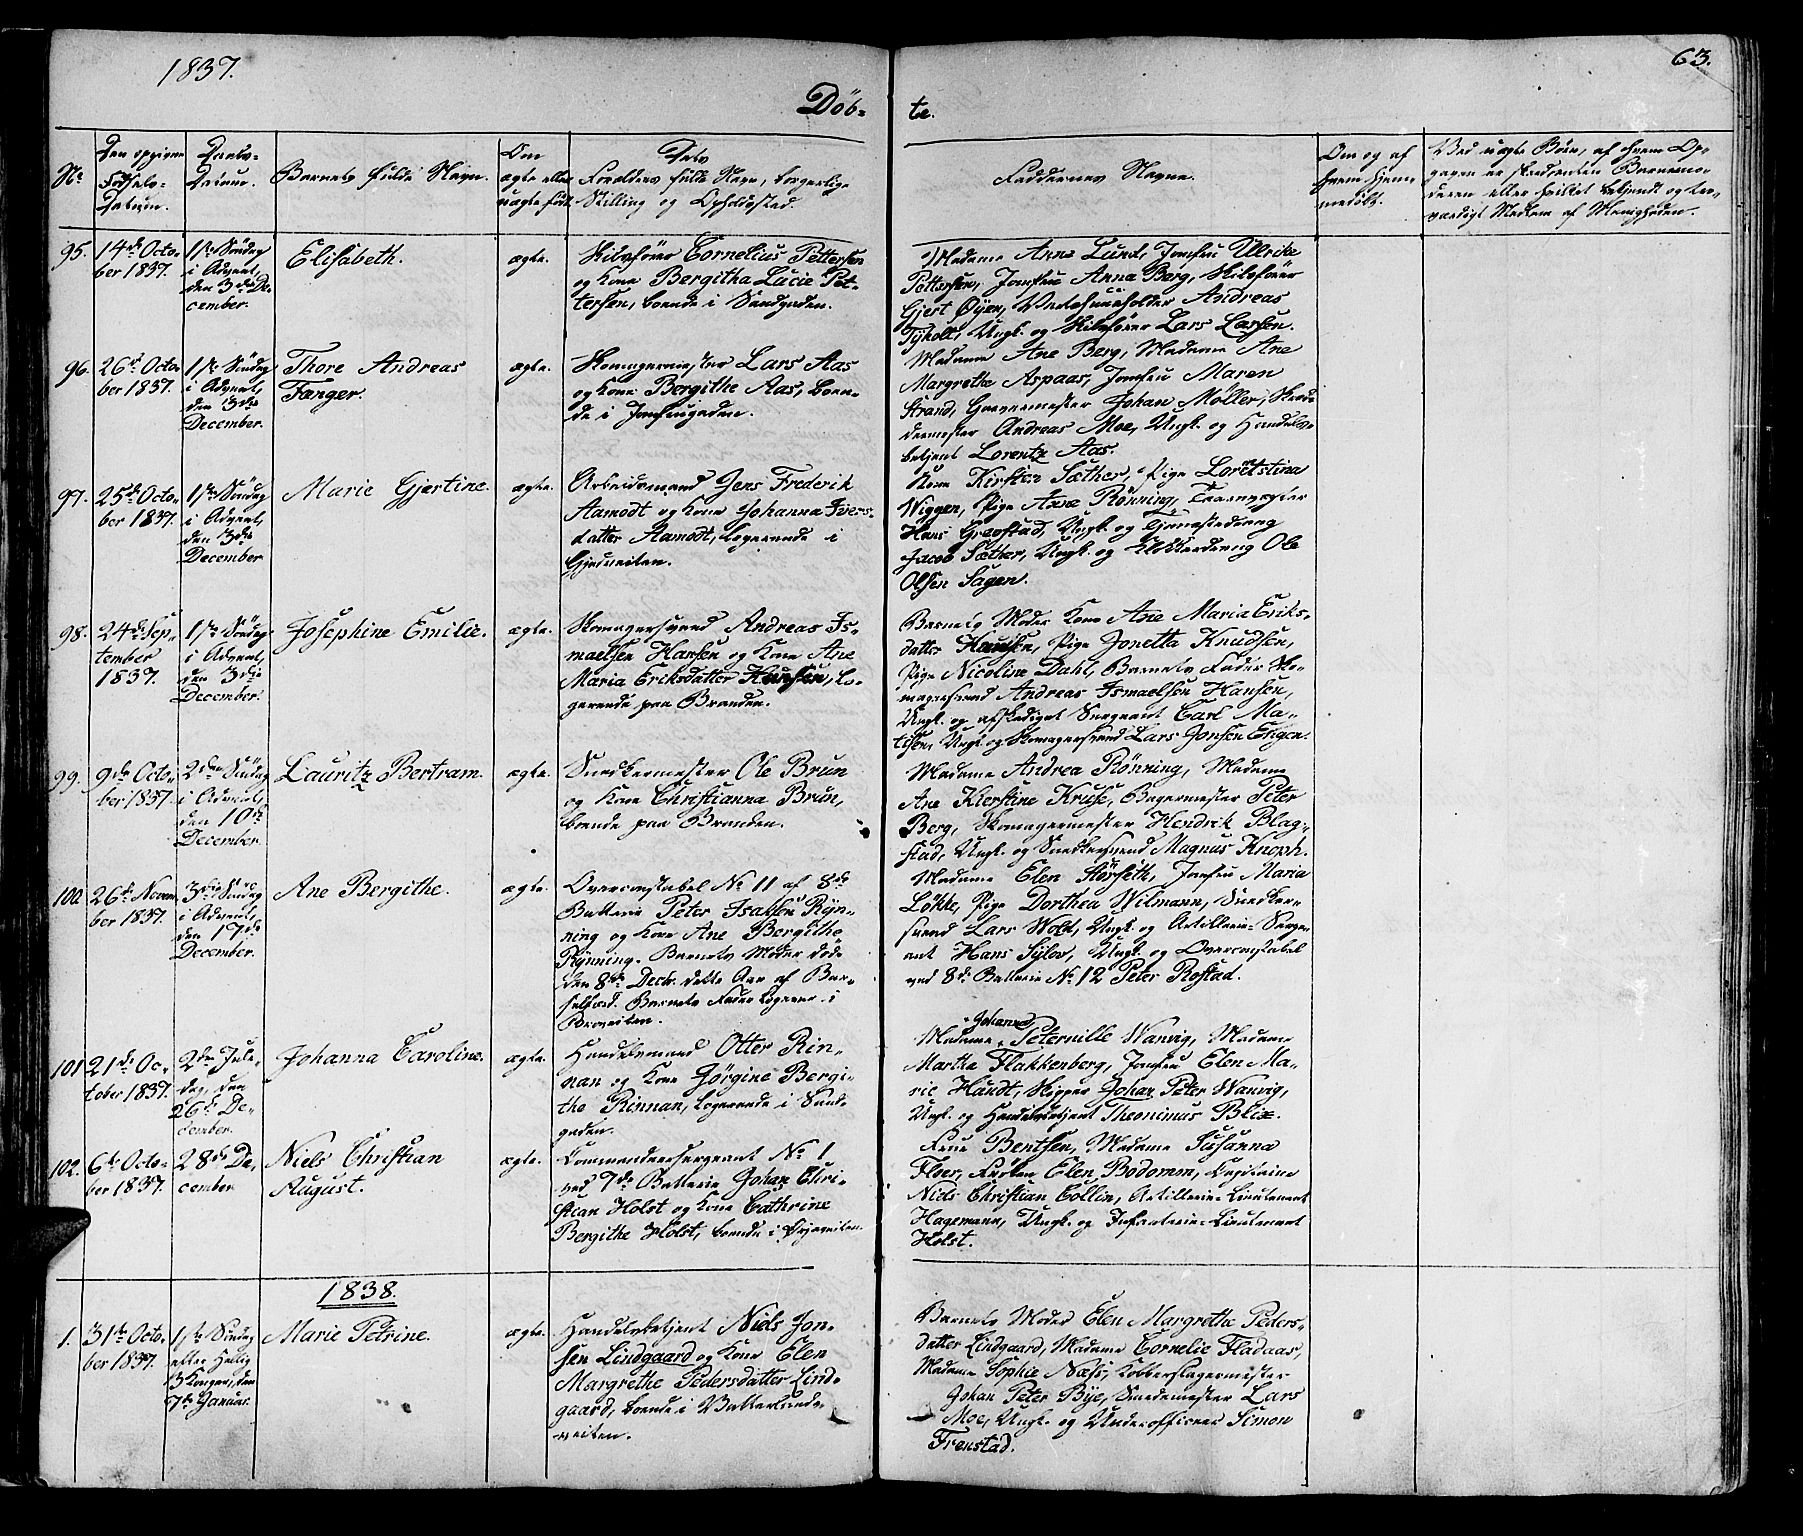 1837.
63.
Döb-
te.
No
Den opgivne
Fødsels-
Datum.
Daabs-
Datum.
Barnets fulde Navn.
Om
ægte eller
uægte født
Dets
Forældres fulde Navn, borgerlige
Stilling og Opholdssted.
Faddernes Navne.
Om og af
hvem hjem-
medöbt.
Ved uægte Börn, af hvem Op-
gaven er
deren eller hvilket bekjendt og tro-
værdigt Medlem af Menigheden.
95.
14de Octo-
ber 1837.
1ste Söndag
i Advent,
den 3die De-
cember.
Elisabeth.
ægte.
Skibsfører Cornelius Pettersen
og Kone Bergitha Lucie Pet-
tersen, boende i Sandgaden.
Madame Ane Lund, Jomfru Ullrike
Pettersen, Jomfru Anna Berg, Skibsfører
Gjert Øyen, Vertshuusholder Andreas
Tyholt, Ungk. og Skibsfører Lars Larsen.
96.
26de Octo-
ber 1837.
1ste Söndag
i Advent,
den 3die
December.
Thore Andreas
Fænger.
ægte.
Skomagermester Lars Aas
og Kone Bergithe Aas, boen-
de i Jomfrugaden.
Madame Ane Berg, Madame Ane
Margrethe Aspaas, Jomfru Maren
Strand, Garvermester Johan Möller, Skræ-
dermester Andreas Moe, Ungk. og Handels-
betjent Lorentz Aas.
97.
25de Octo-
ber 1837.
1ste Söndag
i Advent,
den 3die
December
Marie Gjertine.
ægte.
Arbeidsmand Jens Frederik
Aamodt og Kone Johanna Ivers-
datter Aamodt, logerende i
Gjedveiten.
Kone Kirsten Sæther, Pige Loretstina
Wiggen, Pige Ane Rönning,
Hans Grøstad, Ungk. og Tjenestedreng
Jacob Sæther, Ungk. og Klokkerdreng Ole
Olsen Sagen.
98.
24de Sep-
tember
1837.
1ste Söndag
i Advent,
den 3die
December.
Josephine Emilie.
ægte.
Skomagersvend Andreas Is-
maelsen Hansen og Kone Ane
Maria Eriksdatter Hansen, lo-
gerende paa Branden.
Barnets Moder Kone Ane Maria Eriks-
datter Hansen, Pige Jonetta Knudsen,
Pige Nicoline Dahl, Barnets Fader Sko-
magersvend Andreas Ismaelsen Hansen,
Ungk. og afskediget Sergeant Carl Ma-
tisen, Ungk. og Skomagersvend Lars Jonsen Engen.
99.
9de Octo-
ber 1837
2den Söndag
i Advent,
den 10de
December.
Lauritz Bertram.
ægte.
Snedkermester Ole Brun
og Kone Christianna Brun,
boende paa Branden.
Madame Andrea Rönning, Madame
Ane Kierstine Kruse, Bagermester Peter
Berg, Skomagermester Hendrik Blag-
stad, Ungk. og Snedkersvend Magnus Knoph.
100.
26de Novem-
ber 1837.
3die Söndag
i Advent,
den 17de
December.
Ane Bergithe.
ægte.
Overconstabel No 11 af 8de
Batterie Peter Isaksen Ryn-
ning og Kone Ane Bergithe
Rynning. Barnets Moder döde
den 8de Decbr. dette Aar af Bar-
selfærd. Barnets Fader logerer i
Madame Elen Hörseth, Jomfru Maria
Løkke, Pige Dorthea Wilmann, Snedker-
svend Lars Wold, Ungk. og Artillerie-Serge-
ant Hans Sylow, Ungk. og Overconstabel
ved 8de Batterie No 12 Peter Rostad.
101
21de Oc-
tober 1837.
2den Jule-
dag, den
26de De-
cember.
Johanna Caroline.
ægte.
Handelsmand Otter Rin-
nan og Kone Jörgine Bergi-
the Rinnan, logerende i Sand-
gaden.
Johanna
Madame Peternille Wanvig, Madame
Martha Flakkenberg, Jomfru Elen Ma-
rie Haudt, Skipper Johan Peter Wanvig,
Ungk. og Handelsbetjent Theonimus Blix.
102.
6te Octo-
ber 1837.
28de De-
cember
Niels Christian
August.
ægte.
Commandersergeant No 1
ved 7de Batterie Johan Chri-
stian Holst og Kone Cathrine
Bergithe Holst, boende i Prindsveiten.
Frue Bentsen, Madame Susanna
Floer, Frøken Elen Bodomon, Capitaine
Niels Christian Collin, Artillerie-Lieutenant
Hagemann, Ungk. og Infanterie-Lieutenant
Holst.
1838.
1.
31te Octo-
ber 1837.
1ste Söndag
efter Hellig
3 Konger, den
7de Januar.
Marie Petrine.
ægte.
Handelsbetjent Niels Jon-
sen Lindgaard og Kone Elen
Margrethe Pedersdatter Lind-
gaard, boende i Vatterlands-
veiten.
Barnets Moder Elen Margrethe Peders-
datter Lindgaard, Madame Cornelie Fladaas,
Madame Sophie Næss, Kobberslagermester
Johan Peter Bye, Smedemester Lars
Moe, Ungk. og Underofficeer Simon
Frenstad.